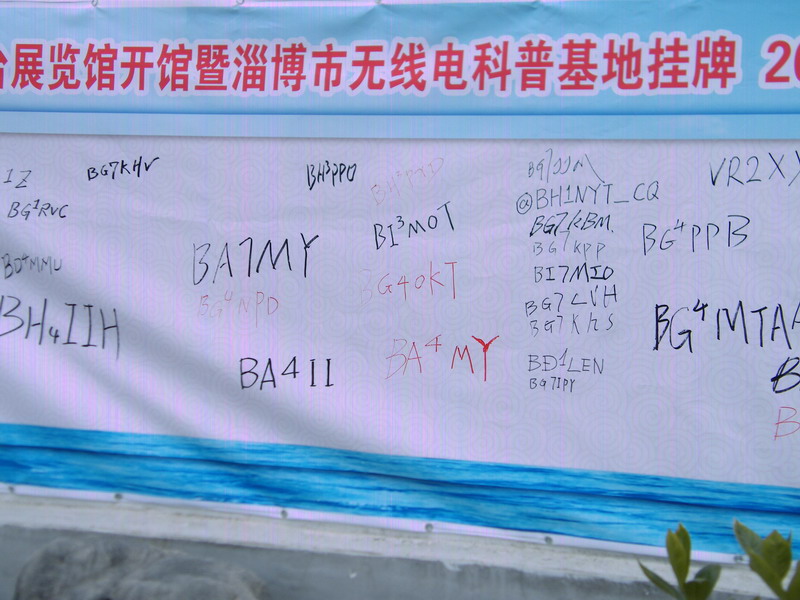 展览馆开馆暨淄博市无线电科普基地挂牌 20
1Z
BG7KHV
BH3PPO
VR2XX
BG1RVC
@BH1NYT_CQ
BI3MOT
BG7KBM.
BG4PPB
BA7MY
BG7KPP
BD4MMU
BI7MIO
BG4OKT
BG4NPD
BG7LVH
BH4IIH
BG4MTAA
BA4MY
BD1LEN
BA4II
BG7IPY
B
B